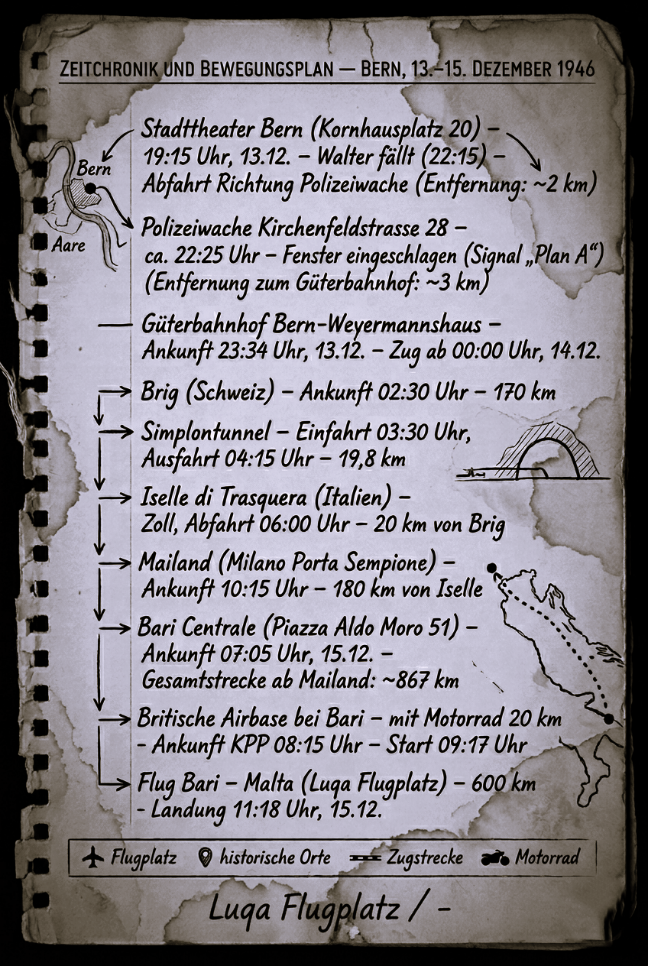 Zeitchronik und Bewegungsplan — Bern, 13.–15. Dezember 1946
Stadttheater Bern (Kornhausplatz 20) –
19:15 Uhr, 13.12. – Walter fällt (22:15) –
Abfahrt Richtung Polizeiwache (Entfernung: ~2 km)
Bern
Aare
Polizeiwache Kirchenfeldstrasse 28 –
ca. 22:25 Uhr – Fenster eingeschlagen (Signal „Plan A“)
(Entfernung zum Güterbahnhof: ~3 km)
Güterbahnhof Bern-Weyermannshaus –
Ankunft 23:34 Uhr, 13.12. – Zug ab 00:00 Uhr, 14.12.
Brig (Schweiz) – Ankunft 02:30 Uhr – 170 km
Simplontunnel – Einfahrt 03:30 Uhr,
Ausfahrt 04:15 Uhr – 19,8 km
Iselle di Trasquera (Italien) –
Zoll, Abfahrt 06:00 Uhr – 20 km von Brig
Mailand (Milano Porta Sempione) –
Ankunft 10:15 Uhr – 180 km von Iselle
Bari Centrale (Piazza Aldo Moro 51) –
Ankunft 07:05 Uhr, 15.12. –
Gesamtstrecke ab Mailand: ~867 km
Britische Airbase bei Bari – mit Motorrad 20 km
- Ankunft KPP 08:15 Uhr – Start 09:17 Uhr
Flug Bari – Malta (Luqa Flugplatz) – 600 km
- Landung 11:18 Uhr, 15.12.
Flugplatz historische Orte Zugstrecke Motorrad
Luqa Flugplatz / -